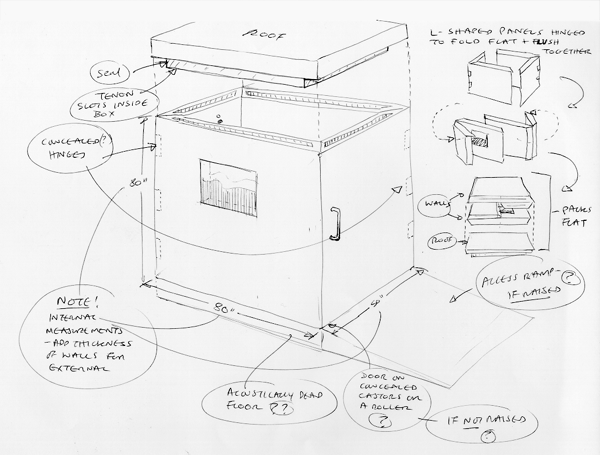 ROOF
SEAL
TENON
SLOTS INSIDE
BOX
CONCEALED?
HINGES
80"
80"
NOTE!
INTERNAL
MEASUREMENTS
- ADD THICKNESS
OF WALLS FOR
EXTERNAL
ACOUSTICALLY DEAD
FLOOR ??
DOOR ON
CONCEALED
CASTORS OR
A ROLLER
?
IF NOT RAISED
?
ACCESS RAMP -
IF RAISED ?
L - SHAPED PANELS HINGED
TO FOLD FLAT + FLUSH
TOGETHER
WALLS
ROOF
PACKS
FLAT